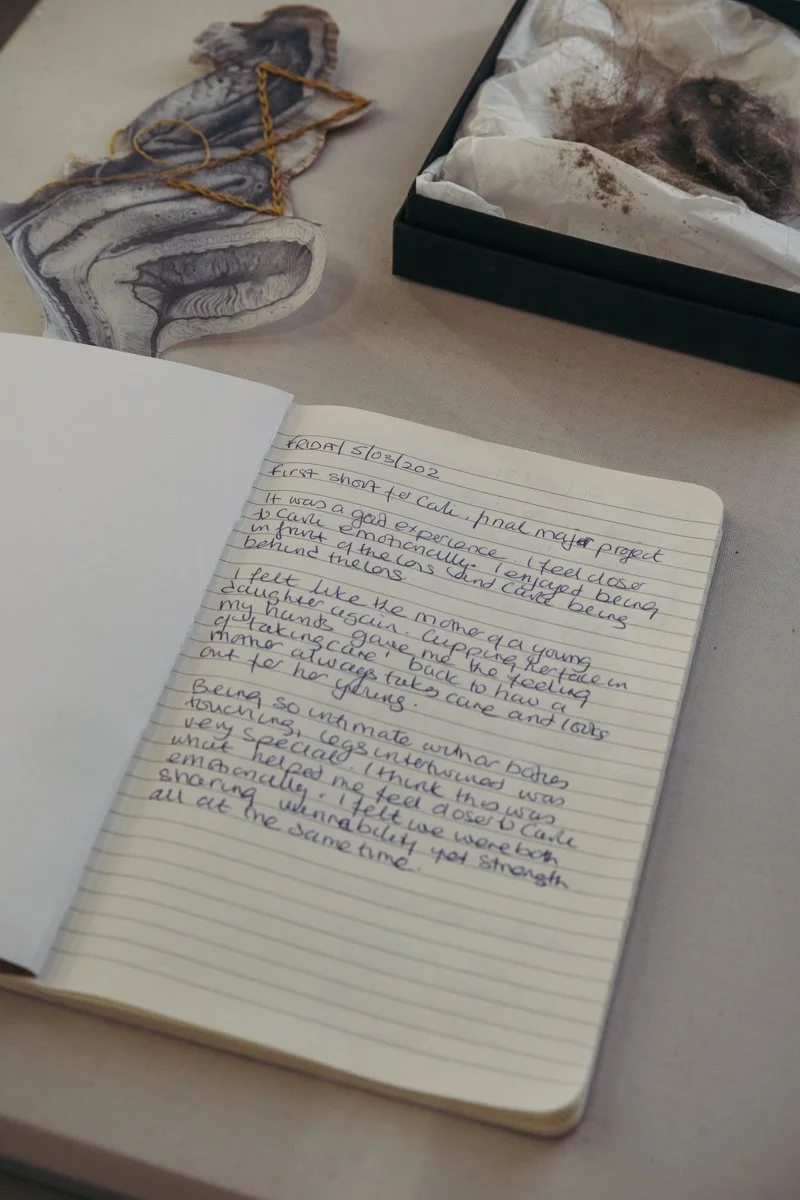 FRIDAY 5/03/202
first short for Cali. final major project
It was a good experience. I feel closer
to Carle emotionally. I enjoyed being
in front of the lens and Carle being
behind the lens.
I felt like the mother of a young
daughter again. Cupping her face in
my hands gave me the feeling
of taking care, back to how a
mother always takes care and looks
out for her young.
Being so intimate with our bodies
touching, legs intertwined was
very special. I think this was
what helped me feel closer to Carle
emotionally. I felt we were both
sharing vulnerability yet strength
all at the same time.